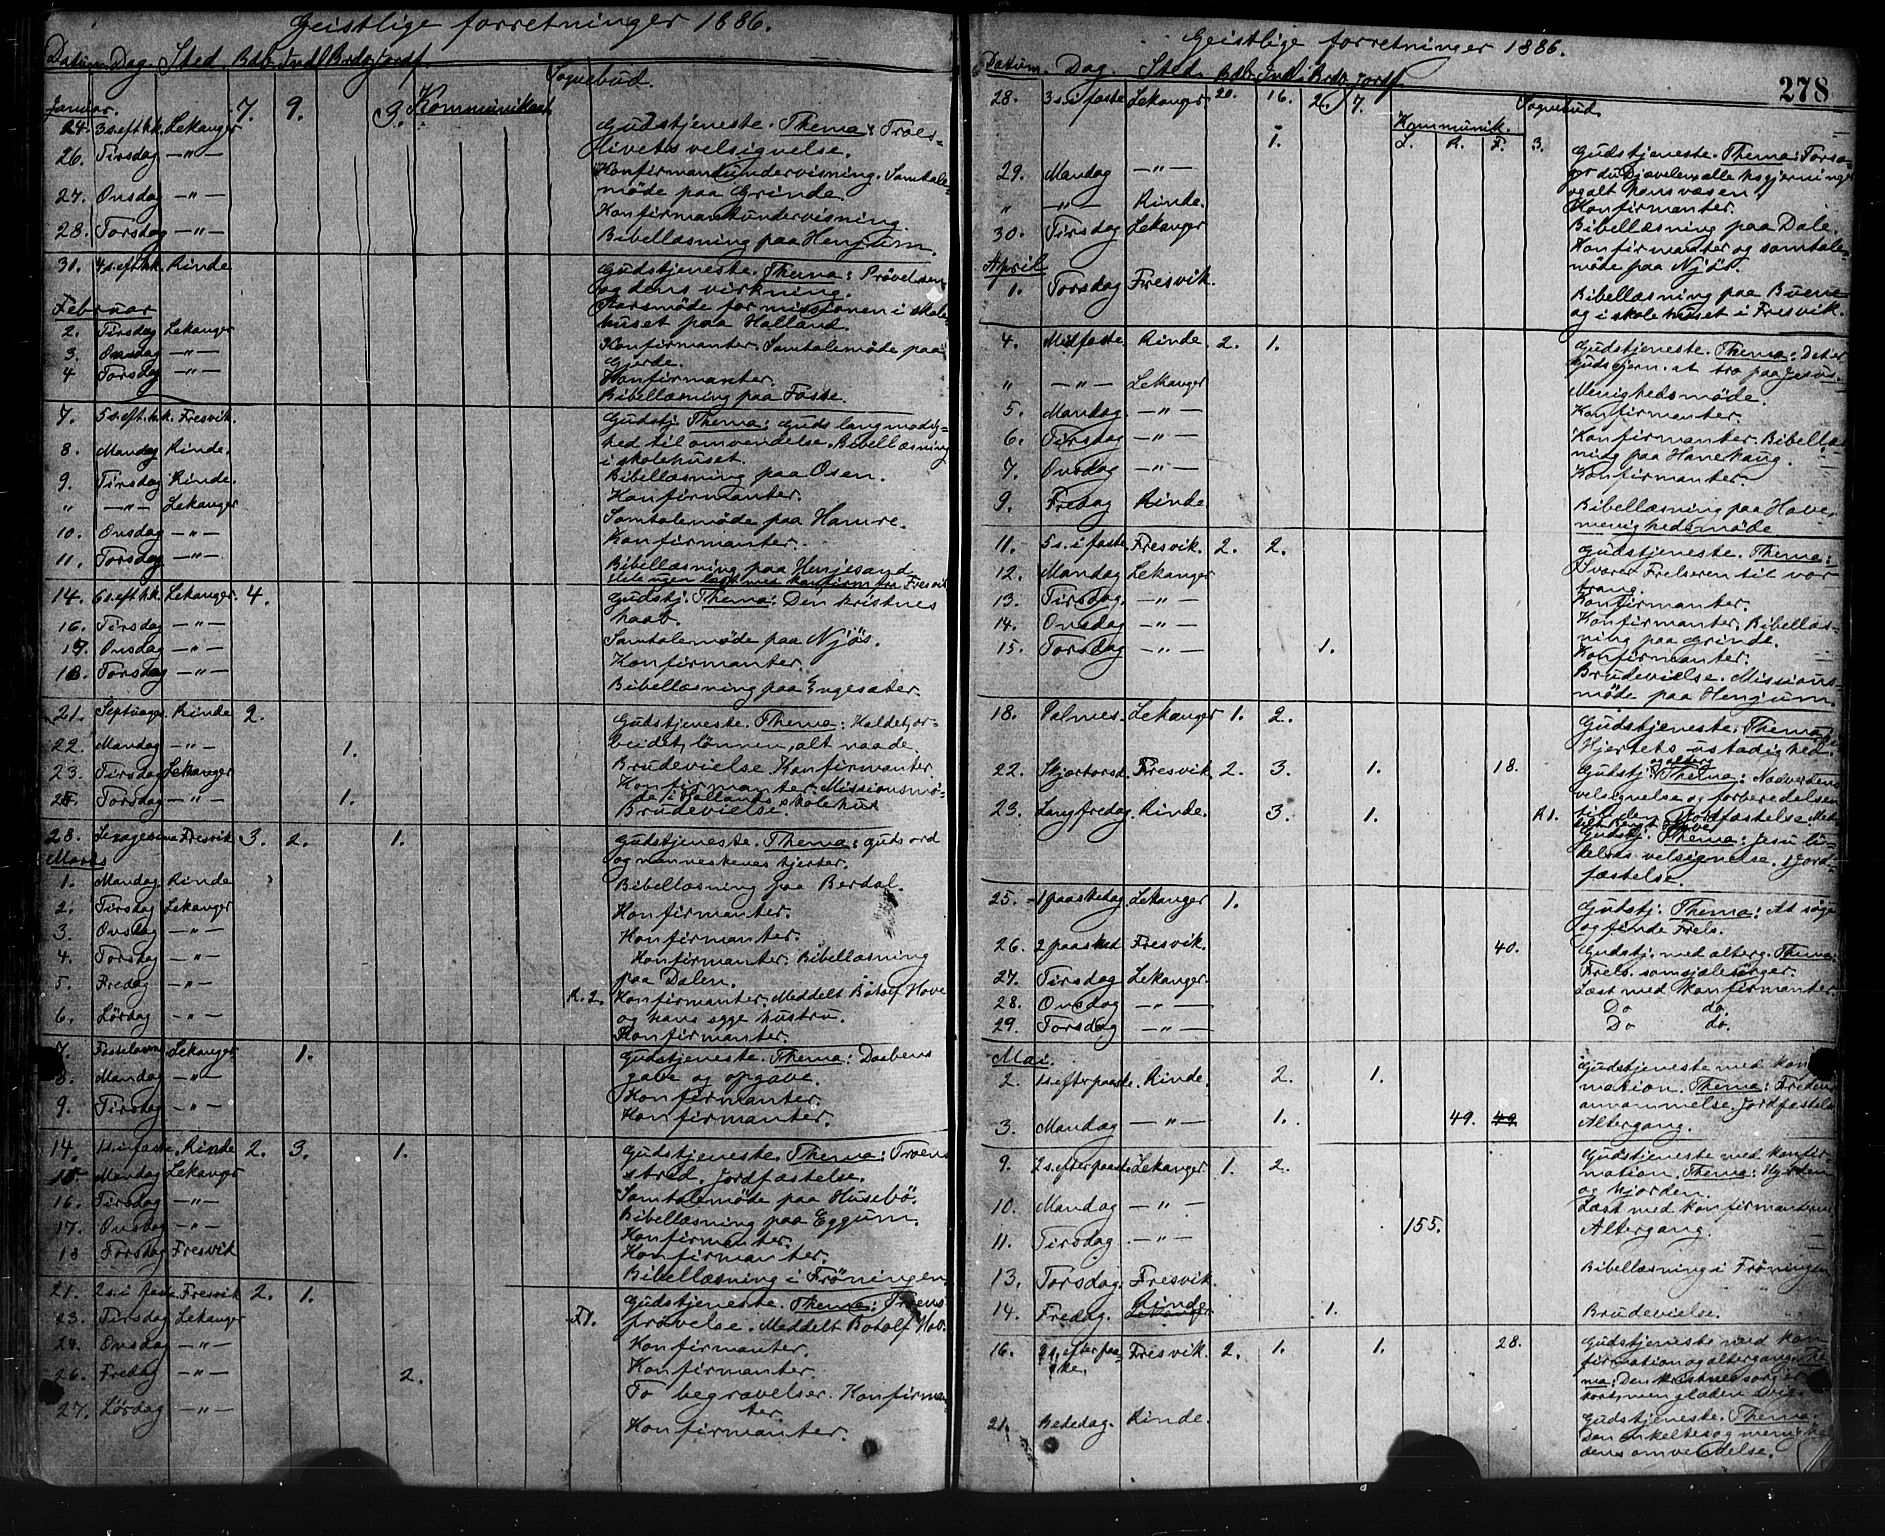 Geistlige forretninger 1886.
Datum Dag. Sted. Bdb. Indl. Brdv. Jordf.
Sognebud.
Januar. 7. 9. 3. Kommunikant
24. 3 s. eft. h.k. Lekanger Gudstjeneste. Thema: Troes-
livets velsignelse.
26. Tirsdag —"— Konfirmantundervisning. Samtale-
møde paa Grinde
27. Onsdag —"— Konfirmantundervisning.
28. Torsdag —"— Bibellæsning paa Henjum.
31. 4 s. eft. h.k. Rinde Gudstjeneste. Thema: Prøvelsen
og dens virkning.
Februar Aarsmøde for missionen i skole-
huset paa Halland.
2. Tirsdag Lekanger Konfirmanter. Samtalemøde paa
Gjerde.
3. Onsdag —"— Konfirmanter.
4 Torsdag —"— Bibellæsning paa Foste.
7. 5 s. eft. h.k. Fresvik. Gudstj. Thema: Guds langmodig-
hed til omvendelse. Bibellæsning
i skolehuset
8. Mandag Rinde. Bibellæsning paa Osen.
9. Tirsdag Rinde. Konfirmanter.
" —"— Lekanger Samtalemøde paa Hamre.
10. Onsdag —"— Konfirmanter.
11. Torsdag —"— Bibellæsning paa Henjesand
Hele ugen læst med konfirm. fra Fresvik
14. 6 s. eft. h.k. Lekanger. 4. Gudstj. Thema: Den kristnes
haab.
16. Tirsdag —"— Samtalemøde paa Njøs.
17. Onsdag —"— Konfirmanter.
18. Torsdag —"— Bibellæsning paa Engesæter.
21. Septuage. Rinde 2. Gudstjeneste. Thema: Kaldet, ar-
beidet, lønnen, alt naade.
22. Mandag —"— 1. Brudevielse Konfirmanter
23. Tirsdag Lekanger Konfirmanter. Missionsmø-
de i Hallands skolehus
25. Torsdag —"— 1. Brudevielse.
28. Sexagesima Fresvik 3. 2. 1. Gudstjeneste. Thema: Guds ord
og menneskenes hjerter.
Marts
1. Mandag. Rinde Bibellæsning paa Berdal.
2. Tirsdag Lekanger Konfirmanter.
3. Onsdag —"— Konfirmanter.
4. Torsdag —"— Konfirmanter. Bibellæsning
paa Dalen.
5. Fredag —"— R. 2. Konfirmanter. Meddelt Botolf Hove
og hans egge hustru.
6. Lördag —"— Konfirmanter.
7. Fastelavns Lekanger 1. Gudstjeneste. Thema: Daabens
gave og opgave.
8. Mandag —"— Konfirmanter.
9. Tirsdag —"— Konfirmanter.
14. 1 s. i faste. Rinde 2. 3. 1. Gudstjeneste. Thema: Troens
strid. Jordfæstelse.
15 Mandag Lekanger Samtalemøde paa Husebö.
16. Tirsdag —"— Bibellæsning paa Eggum.
17. Onsdag —"— Konfirmanter.
18 Torsdag Fresvik Konfirmanter.
Bibellæsning i Fröningen
21. 2 s. i faste Fresvik 2. 1. Gudstjeneste. Thema: Troens
prøvelse. Meddelt Botolf Hov.
23. Tirsdag Lekanger F1.
24. Onsdag —"— Konfirmanter.
26. Fredag —"— 2. Konfirmanter.
To begravelser. Konfirman-
ter.
27. Lördag —"— Konfirmanter.
Geistlige forretninger 1886.
278
Datum. Dag. Sted. Bdb. Indl. Brdv. Jordf.
Sognebud
28. 3 s. i faste Lekanger 20. 16. 2. 7.
Kommunik.
1. L. R. F. 3.
Gudstjeneste. Thema: Forsa-
ger du Djævelen, alle hs gjerninger
og alt hans væsen?
29. Mandag —"— Konfirmanter.
" —"— Rinde. Bibellæsning paa Dale.
30. Tirsdag Lekanger Konfirmanter og samtale-
møde paa Njøs.
April
1. Torsdag Fresvik. Bibellæsning paa Buene
og i skolehuset i Fresvik.
4. Midfaste. Rinde. 2. 1. Gudstjeneste. Thema: Det er
Guds gjern. at tro paa Jesus.
" —"— Lekanger Menighedsmøde.
5. Mandag. —"— Konfirmanter.
6. Tirsdag —"— Konfirmanter. Bibellæs-
ning paa Hanehaug.
7. Onsdag —"— Konfirmanter.
9. Fredag Rinde. Bibellæsning paa Hove,
menighedsmøde
11. 5 s. i faste. Fresvik. 2. 2. Gudstjeneste. Thema:
Svarer Frelseren til vor
trang.
12. Mandag Lekanger Konfirmanter.
13. Tirsdag. —"— Konfirmanter. Bibellæs-
ning paa Grinde.
14. Onsdag —"— Konfirmanter.
15. Torsdag —"— 1. Brudevielse. Missions-
møde paa Henjum.
18. Palmes. Lekanger 1. 2. Gudstjeneste. Thema
Hjertets ustadighed.
22. Skjærtorsd. Fresvik 2. 3. 1. 18. Gudstj. og alterg Thema: Nadverdens
velsignelse og forberedelsen
til den Jordfæstelse. Med-
23. Langfredag. Rinde. 3. 1. R1. delt Bengt Hove
Gudstj. Thema: Jesu li-
delses velsignelse. 1 Jord-
fæstelse.
25. 1 paaskedag. Lekanger 1. Gudstj. Thema: At søge
og finde Frels.
26. 2 paasked Fresvik. 40. Gudstj. med alterg. Thema:
Frels. som sjælesörger.
27. Tirsdag Lekanger. Læst med konfirmanter.
28. Onsdag —"— Do do.
29. Torsdag —"— Do do.
Mai.
2. 1 s. efter paaske. Rinde. 2. 1. Gudstjeneste med konfir-
mation. Thema: Fredens
annammelse. Jordfæstelse
3. Mandag —"— 1. 49. 49 Altergang.
9. 2 s. efter paaske Lekanger 1. 2. Gudstjeneste med konfir-
mation. Thema: Hyrden
og hjorden.
10. Mandag —"— Læst med konfirmanderne
11. Tirsdag. —"— 155. Altergang.
13. Torsdag. Fresvik. Bibellæsning i Fröningen
14. Fredag. Rinde Lekanger 1. Brudevielse.
16. 3 s. efter paa-
ske. Fresvik. 2. 1. 1. 28. Gudstjeneste med kon-
firmation og altergang. The-
ma: Den kristnes sorg er
kort, men glæden evig.
21. Bededag. Rinde. Gudstjeneste. Thema:
Den enkeltes og menighe-
dens omvendelse.